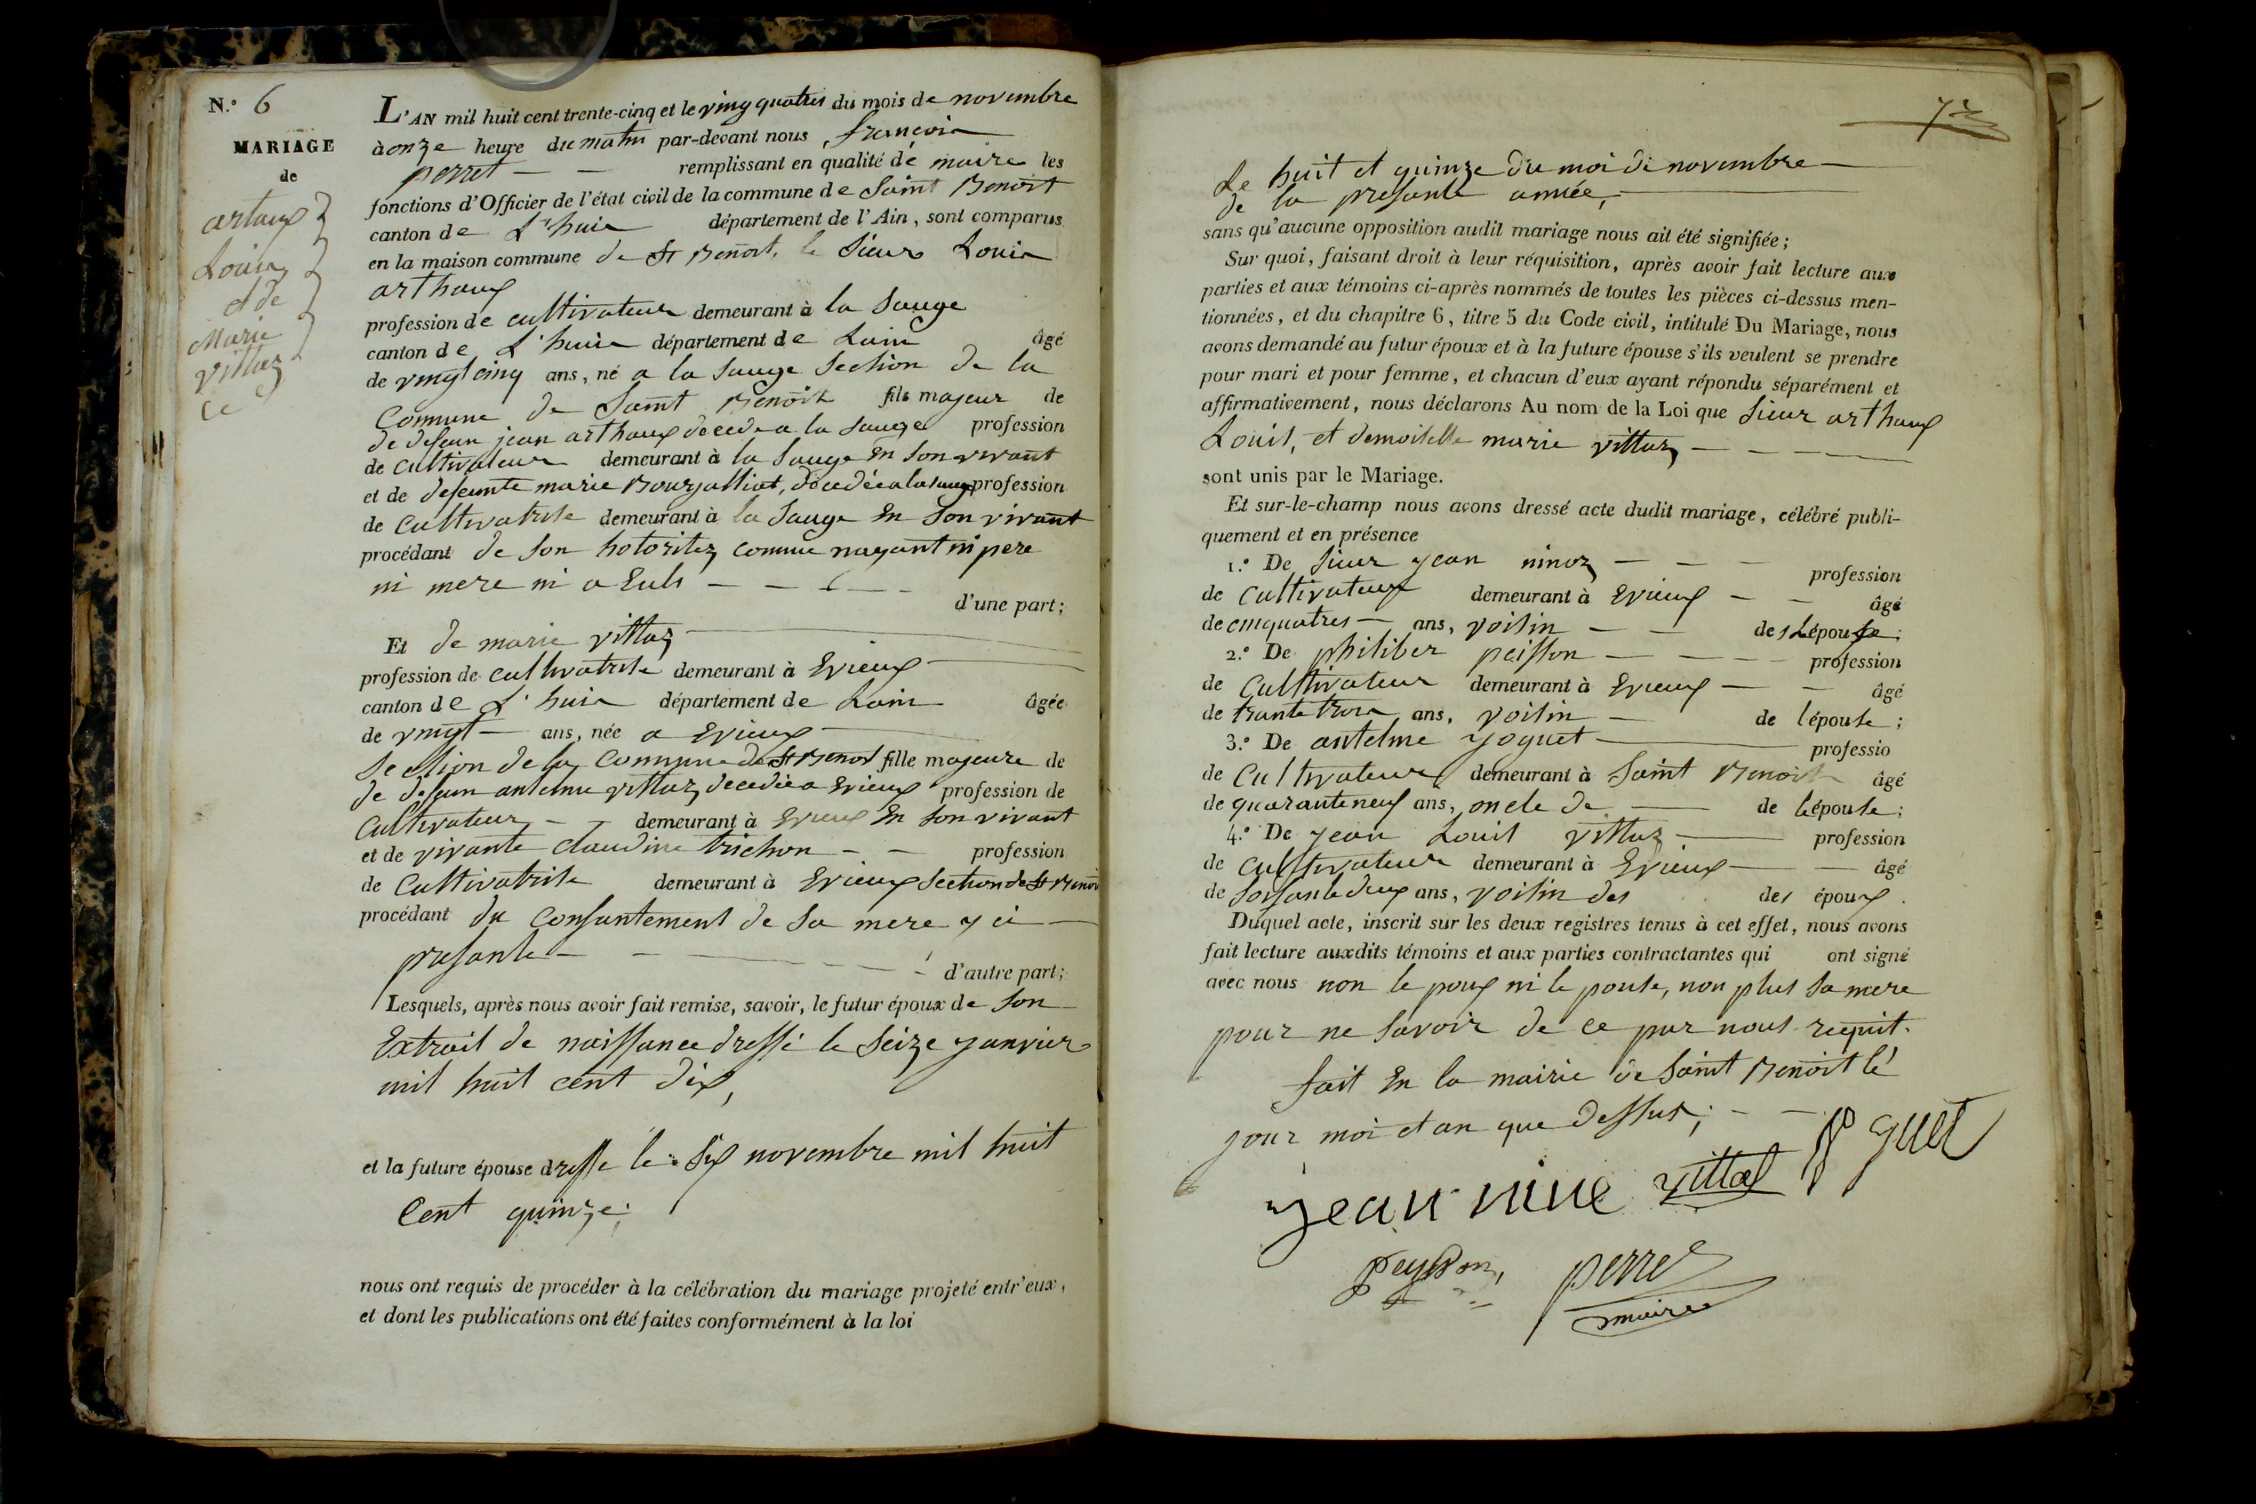 N.° 6
MARIAGE
de
artaux
Louis
et de
Marie
vittoz
L'AN mil huit cent trente-cinq et le ving quatres du mois de novembre
à onze heure du matin par-devant nous, françois
perret — — remplissant en qualité de maire les
fonctions d'Officier de l'état civil de la commune de Saint Benoit
canton de L'huis département de l'Ain, sont comparus
en la maison commune de St Benoit, le Sieur Louis
arthaux
profession de cultivateur demeurant à la Sauge
canton de L'huis département de Lain âgé
de vingt cinq ans, né a la Sauge Section de la
Commune de Saint Benoit fils majeur de
de defeun jean arthaux decede a la Sauge profession
de Cultivateur demeurant à la Sauge En Son vivant
et de defeunte marie Bourgalliat, decedée a la Sauge profession
de Cultivatrise demeurant à la Sauge En Son vivant
procédant de Son hotoritez comme nayant ni pere
ni mere ni a Euls — — — —
d'une part;
Et de marie vittoz
profession de cultivatrise demeurant à Evieux
canton de L'huis département de Lain âgée
de vingt — ans, née a Evieux
Section de la Commune de St Benoit fille majeure de
de defeun antelme vittoz decedée a Evieux profession de
Cultivateur — — demeurant à Evieux En Son vivant
et de vivante claudine trichon — — profession
de Cultivatrise demeurant à Evieux Section de St Benoit
procédant du Consantement de Sa mere y ci
presante — — — d'autre part;
Lesquels, après nous avoir fait remise, savoir, le futur époux de Son
Extrait de naissance dressé le Seize janvier
mil huit cent dix,
et la future épouse dresse le Six novembre mil huit
Cent quinze;
nous ont requis de procéder à la célébration du mariage projeté entr'eux,
et dont les publications ont été faites conformément à la loi
Le huit et quinze du moi de novembre —
de la presante année,
sans qu'aucune opposition audit mariage nous ait été signifiée;
Sur quoi, faisant droit à leur réquisition, après avoir fait lecture aux
parties et aux témoins ci-après nommés de toutes les pièces ci-dessus men-
tionnées, et du chapitre 6, titre 5 du Code civil, intitulé Du Mariage, nous
avons demandé au futur époux et à la future épouse s'ils veulent se prendre
pour mari et pour femme, et chacun d'eux ayant répondu séparément et
affirmativement, nous déclarons Au nom de la Loi que Sieur arthaux
Louis, et demoiselle marie vittoz — — — —
sont unis par le Mariage.
Et sur-le-champ nous avons dressé acte dudit mariage, célébré publi-
quement et en présence
1.° De Sieur jean ninoz — — — profession
de Cultivateur demeurant à Evieux — — âgé
de cinquatres — ans, voisin — — des Lépouse;
2.° De philiber peisson — — — profession
de Cultivateur demeurant à Evieux — — âgé
de trante trois ans, voisin — de lépouse;
3.° De antelme joguet — profession
de Cultivateur demeurant à Saint Benoit âgé
de quarante neuf ans, oncle de — de lépouse;
4.° De jean Louis vittoz — profession
de Cultivateur demeurant à Evieux — — âgé
de Soisante deux ans, voisin des des époux.
Duquel acte, inscrit sur les deux registres tenus à cet effet, nous avons
fait lecture auxdits témoins et aux parties contractantes qui ont signé
avec nous non le poux ni le pouse, non plus Sa mere
pour ne Savoir de ce par nous requit.
fait En la mairie de Saint Benoit le
jour moi et an que dessus; — —
jean nine vittoz joguet
peysson, perret
maire